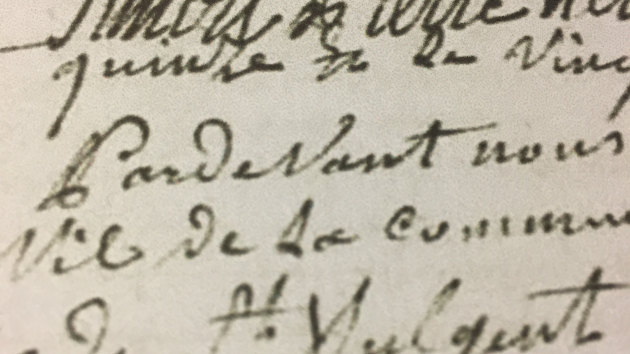 Pierre
quinze de la vin
Pardevant nous
Vil de la commu
de St fulgent